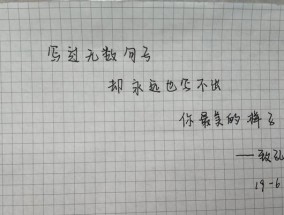 写过无数句子
却永远也写不出
你最美的样子
——致
19-6